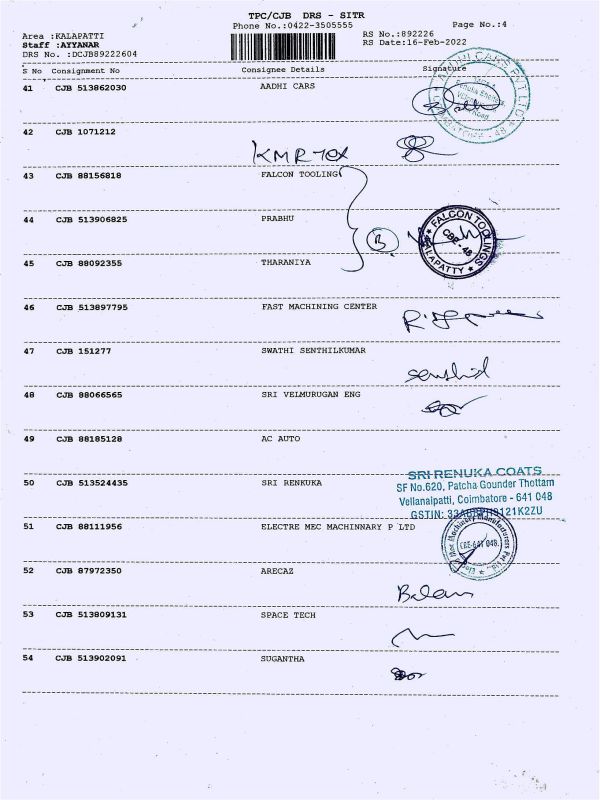 TPC/CJB DRS - SITR
Phone No.:0422-3505555
Page No.:4
Area :KALAPATTI
RS No.:892226
Staff :AYYANAR
RS Date:16-Feb-2022
DRS No. :DCJB89222604
S No Consignment No Consignee Details Signature
41 CJB 513862030 AADHI CARS
42 CJB 1071212
KMR TEX
43 CJB 88156818 FALCON TOOLING
44 CJB 513906825 PRABHU
FALCON TOOLINGS
CBE-48
KALAPATTY
45 CJB 88092355 THARANIYA
46 CJB 513897795 FAST MACHINING CENTER
47 CJB 151277 SWATHI SENTHILKUMAR
48 CJB 88066565 SRI VELMURUGAN ENG
49 CJB 88185128 AC AUTO
50 CJB 513524435 SRI RENKUKA
SRI RENUKA COATS
SF No.620, Patcha Gounder Thottam
Vellanaipatti, Coimbatore - 641 048
GSTIN:
51 CJB 88111956 ELECTRE MEC MACHINNARY P LTD
CBE-641 048.
52 CJB 87972350 ARECAZ
Balan
53 CJB 513809131 SPACE TECH
54 CJB 513902091 SUGANTHA